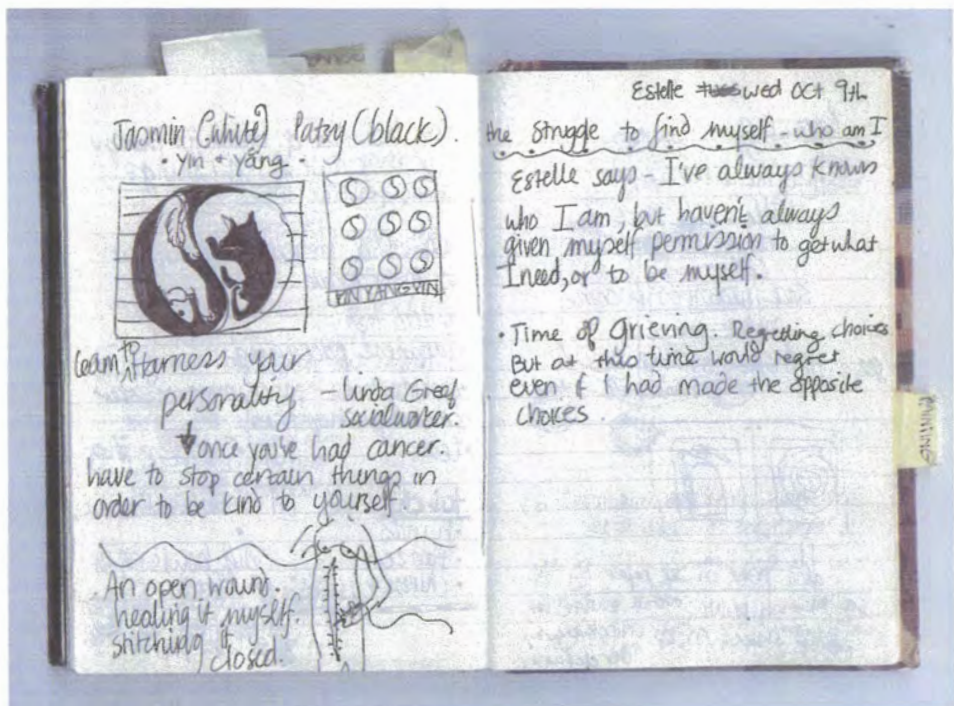 Jasmin (white) Patsy (black).
· yin + yang ·
YIN YANG YIN
learn to Harness your
personality – Linda Greef
socialworker.
once you've had cancer.
have to stop certain things in
order to be kind to yourself.
An open wound.
healing it myself.
stitching it
closed.
Estelle tues wed Oct 9th
the struggle to find myself - who am I
Estelle says - I've always known
who I am, but haven't always
given myself permission to get what
I need, or to be myself.
· Time of Grieving. Regretting choices
But at this time would regret
even if I had made the opposite
choices.
PAINTING